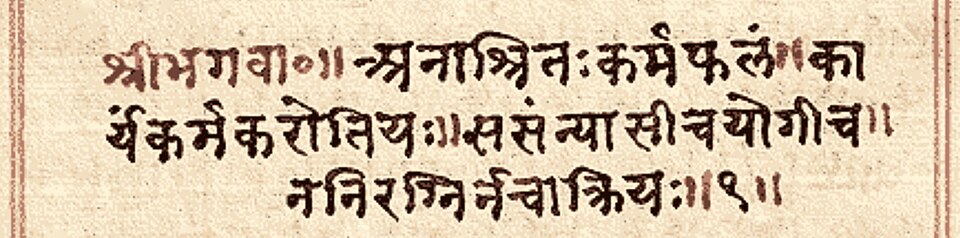 श्रीभगवा०॥ अनाश्रितःकर्मफलं॥का
र्यंकर्मकरोतियः॥ससंन्यासीचयोगीच॥
ननिरग्निर्नचाक्रियः॥१॥